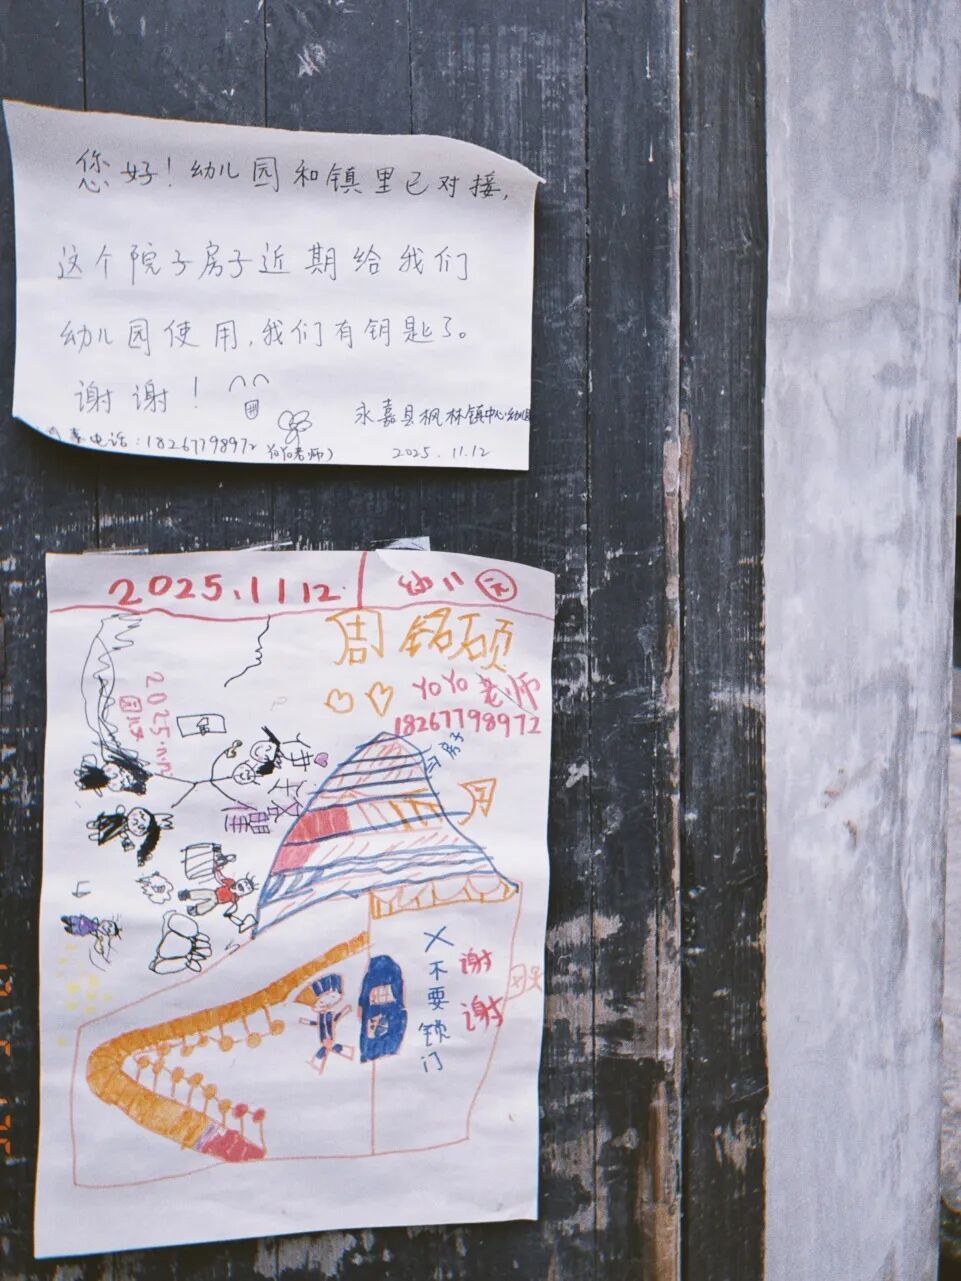 您好！幼儿园和镇里已对接，
这个院子房子近期给我们
幼儿园使用，我们有钥匙了。
谢谢！
永嘉县枫林镇中心幼
电话：18267798972
老师）
2025.11.12
2025.11.12.
幼儿园
周铭硕
YOYO老师
18267798972
2025.11.11
月
×
不要锁门
谢谢